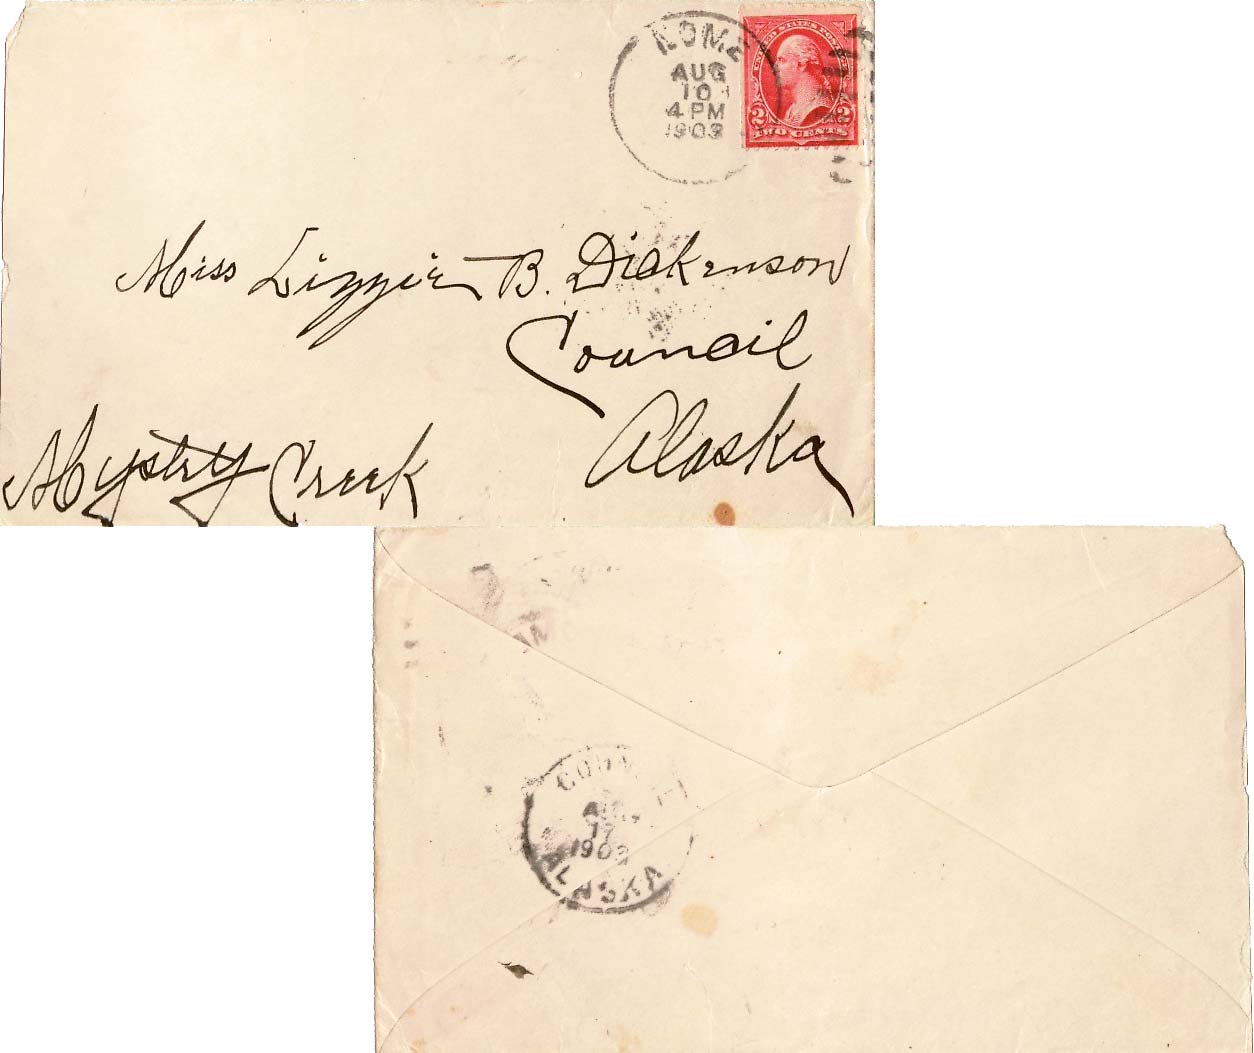 NOME
AUG
10
4 PM
1903
UNITED STATES POSTAGE
2 2
TWO CENTS
Miss Lizzie B. Dickenson
Council
Alaska
Mystery Creek
AUG
17
1903
ALASKA